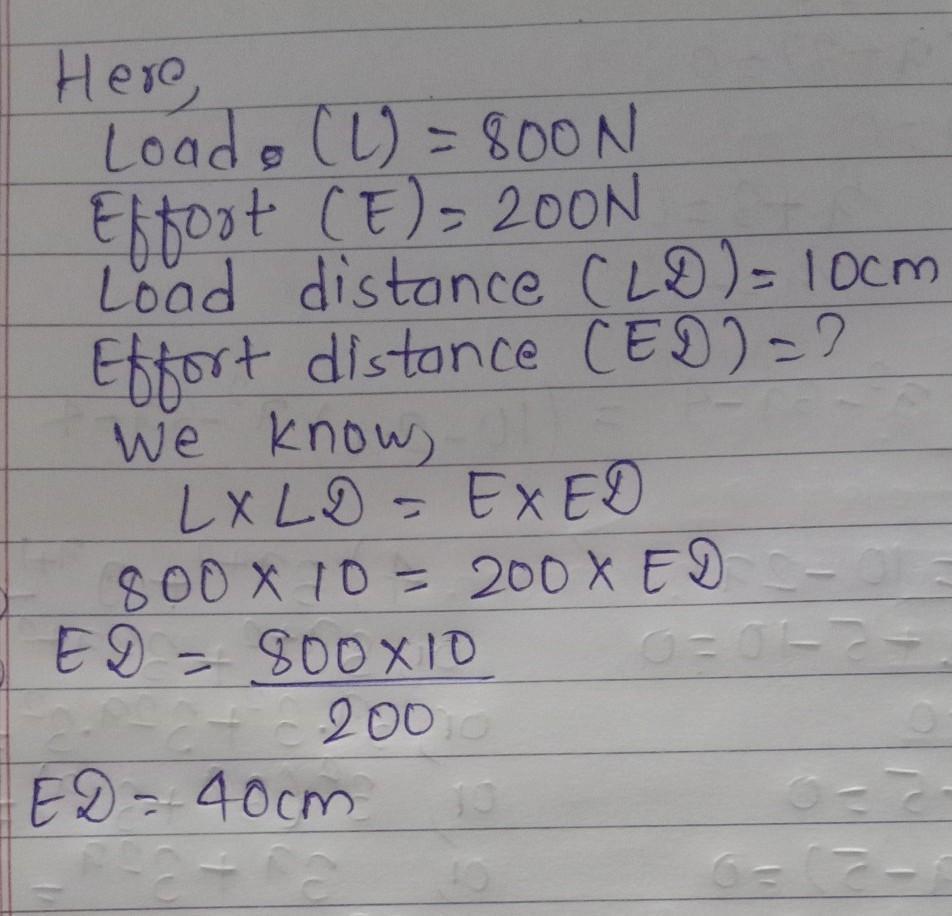 Here,
Load. (L) = 800N
Effort (E) = 200N
Load distance (LD) = 10cm
Effort distance (ED) = ?
We know,
L×LD = E×ED
800 × 10 = 200 × ED
ED = 800×10
200
ED = 40cm